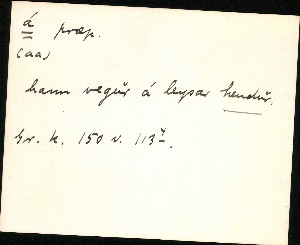 á præp.
(aa)
hann vegur á leysar hendur.
Gr. k. 150 v. 113⁴.